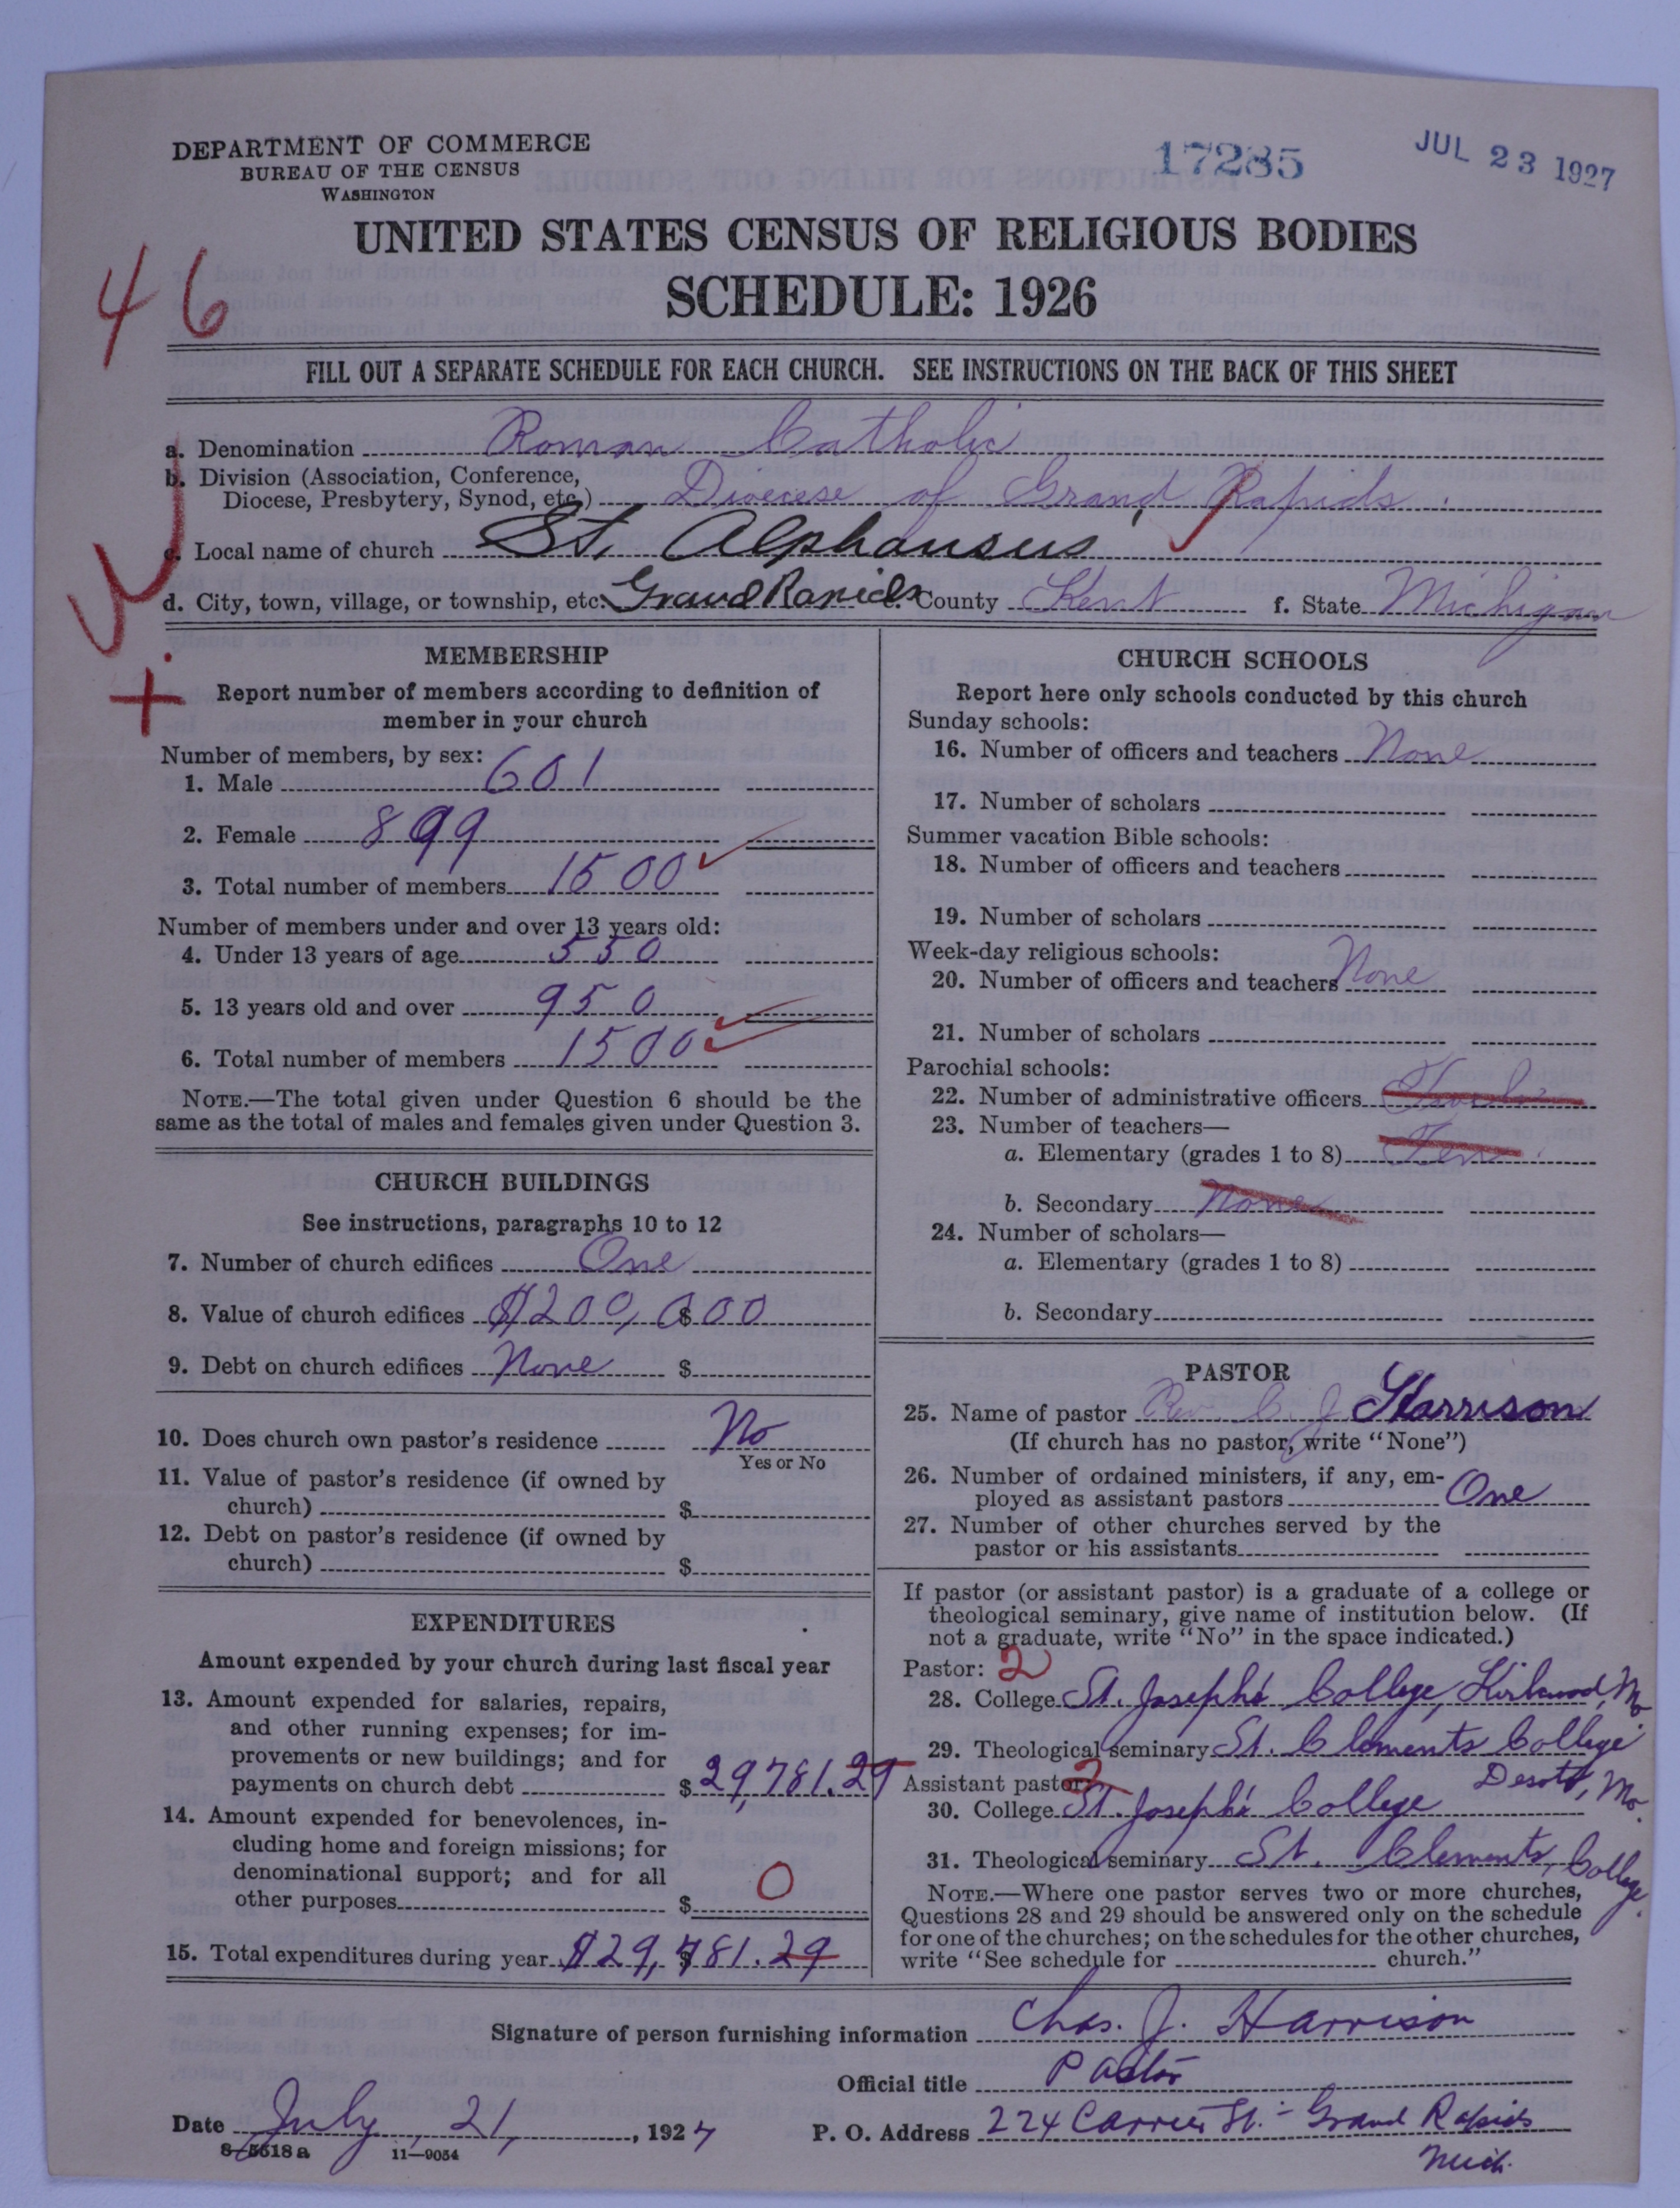 DEPARTMENT OF COMMERCE
BUREAU OF THE CENSUS
WASHINGTON
17285
JUL 23 1927
UNITED STATES CENSUS OF RELIGIOUS BODIES
SCHEDULE: 1926
46
FILL OUT A SEPARATE SCHEDULE FOR EACH CHURCH. SEE INSTRUCTIONS ON THE BACK OF THIS SHEET
a. Denomination Roman Catholic
b. Division (Association, Conference,
Diocese, Presbytery, Synod, etc.) Diocese of Grand Rapids.
c. Local name of church St. Alphansus
d. City, town, village, or township, etc. Grand Rapids e. County Kent f. State Michigan
MEMBERSHIP
Report number of members according to definition of
member in your church
Number of members, by sex:
1. Male 601
2. Female 899
3. Total number of members 1500
Number of members under and over 13 years old:
4. Under 13 years of age 550
5. 13 years old and over 950
6. Total number of members 1500
NOTE.—The total given under Question 6 should be the
same as the total of males and females given under Question 3.
CHURCH BUILDINGS
See instructions, paragraphs 10 to 12
7. Number of church edifices One
8. Value of church edifices $200,000
9. Debt on church edifices None $
10. Does church own pastor's residence No
Yes or No
11. Value of pastor's residence (if owned by
church) $
12. Debt on pastor's residence (if owned by
church) $
EXPENDITURES
Amount expended by your church during last fiscal year
13. Amount expended for salaries, repairs,
and other running expenses; for im-
provements or new buildings; and for
payments on church debt $29,781.29
14. Amount expended for benevolences, in-
cluding home and foreign missions; for
denominational support; and for all
other purposes $ 0
15. Total expenditures during year $29,781.29
CHURCH SCHOOLS
Report here only schools conducted by this church
Sunday schools:
16. Number of officers and teachers None
17. Number of scholars
Summer vacation Bible schools:
18. Number of officers and teachers
19. Number of scholars
Week-day religious schools:
20. Number of officers and teachers None
21. Number of scholars
Parochial schools:
22. Number of administrative officers
23. Number of teachers—
a. Elementary (grades 1 to 8) Ten
b. Secondary None
24. Number of scholars—
a. Elementary (grades 1 to 8)
b. Secondary
PASTOR
25. Name of pastor Rev. C. J. Harrison
(If church has no pastor, write "None")
26. Number of ordained ministers, if any, em-
ployed as assistant pastors One
27. Number of other churches served by the
pastor or his assistants
If pastor (or assistant pastor) is a graduate of a college or
theological seminary, give name of institution below. (If
not a graduate, write "No" in the space indicated.)
Pastor: 2
28. College St. Joseph's College, Kirkwood, Mo.
29. Theological seminary St. Clements College
Desoto, Mo.
Assistant pastor: 2
30. College St. Joseph's College
31. Theological seminary St. Clements, College.
NOTE.—Where one pastor serves two or more churches,
Questions 28 and 29 should be answered only on the schedule
for one of the churches; on the schedules for the other churches,
write "See schedule for church."
Signature of person furnishing information Chas. J. Harrison
Official title Pastor
Date July, 21, 1927 P. O. Address 224 Carrier St. - Grand Rapids
Mich.
8-5618 a 11—9054